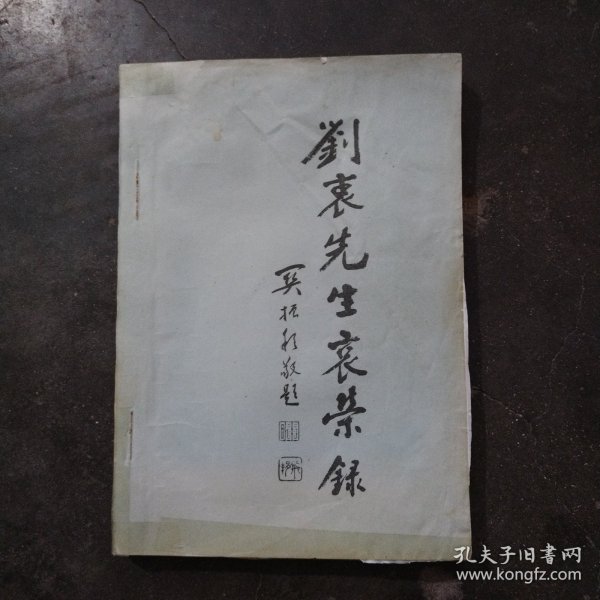 劉衷先生哀榮録
吴振邦敬題
孔夫子旧書网
www.kongfz.com